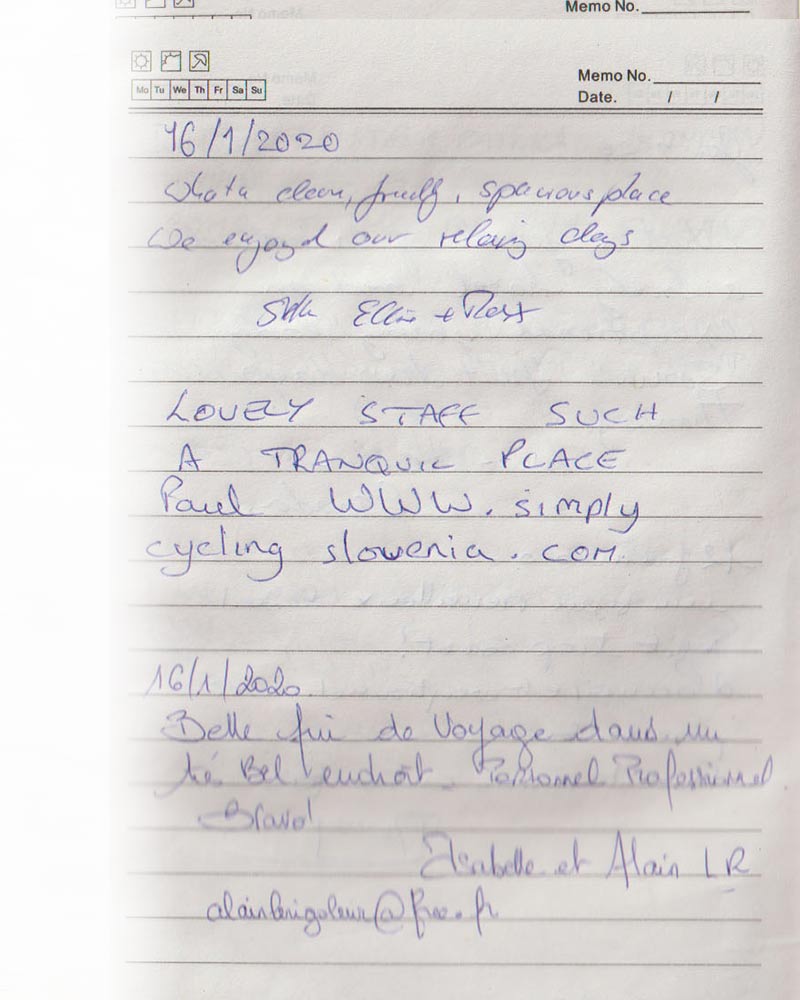 Memo No.
Memo No.
Mo Tu We Th Fr Sa Su
Date. / /
16/1/2020
What a clean, , spacious place
We enjoyd our relaxing days
Ellie +
LOVELY STAFF SUCH
A TRANQUIL PLACE
Paul WWW. simply
cycling slowenia . COM
16/1/2020
Belle fin de Voyage dans un
Bel endroit. Personnel Professionnel
Bravo!
Isabelle et Alain LR
@free.fr